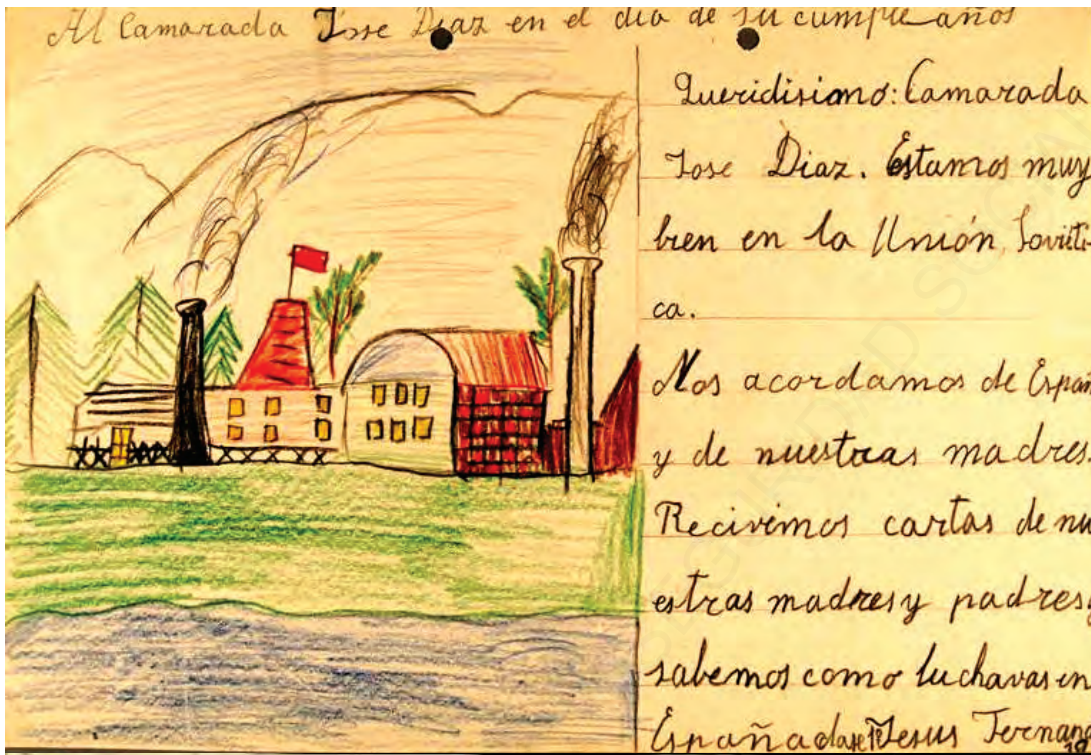 Al Camarada Jose Diaz en el dia de su cumple años
Queridisimo: Camarada
Jose Diaz. Estamos muy
bien en la Unión Sovieti-
ca.
Nos acordamos de Españ
y de nuestras madres.
Recivimos cartas de nu
estras madres y padres y
sabemos como luchavas en
España clase 1ª Jesus Fernand